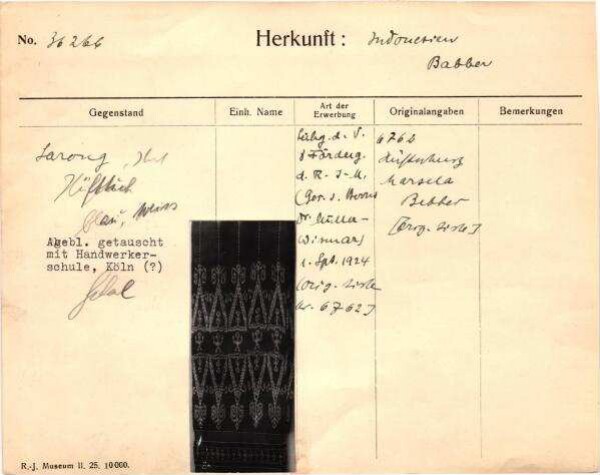 No. 36266
Herkunft: Indonesien
Babber
Gegenstand
Einh. Name
Art der Erwerbung
Originalangaben
Bemerkungen
Sarong,
Hüfttuch
blau, weiss
Angebl. getauscht
mit Handwerker-
schule, Köln (?)
d. V.
z. Förderg.
d. R.-J.-M.
Dr. Müller-
Wismar)
1. Spt. 1924
(Orig. Liste
Nr. 6762)
6762
Marsela
Babber
[Orig. Liste]
R.-J. Museum II. 25. 10000.